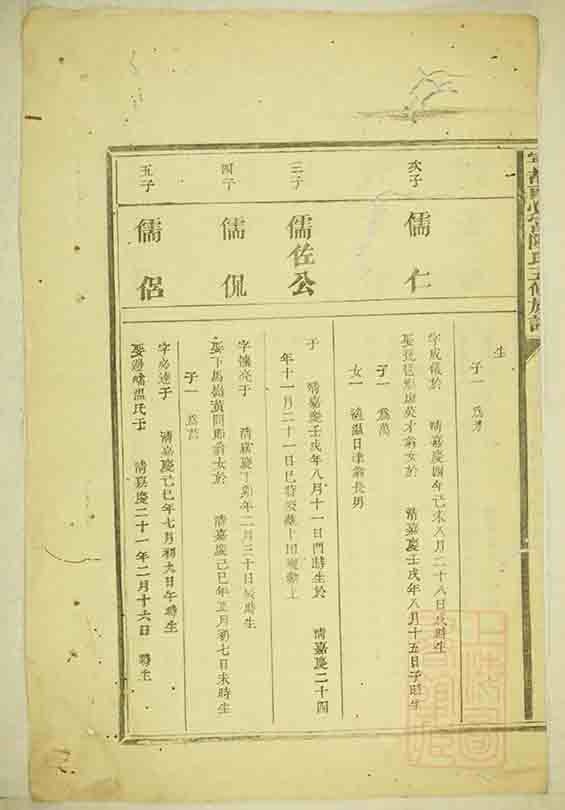 生
子一 為
次子
儒仁
字成儀於 清嘉慶四年己未八月二十八日辰時生
英才翁女於 清嘉慶壬戌年八月十五日子時生
子一 為萬
女一 適溫日 翁長男
三子
儒佐公
于 清嘉慶壬戌年八月十一日 時生於 清嘉慶二十四
年十一月二十一日巳時
四子
儒侃
字 亮于 清嘉慶丁卯年二月三十日辰時生
娶下馬 黃 翁女於 清嘉慶己巳年五月初七日未時生
子一 為
五子
儒侶
字必達于 清嘉慶己巳年七月初九日午時生
娶 溫氏于 清嘉慶二十一年二月十六日 時生
五修族譜
上海圖書館藏